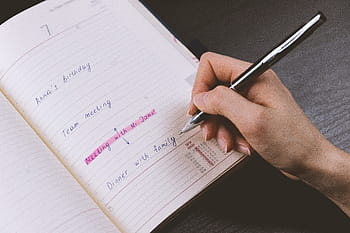 7
Anna's birthday
Team meeting
Meeting with Mr. Jones
Dinner with family